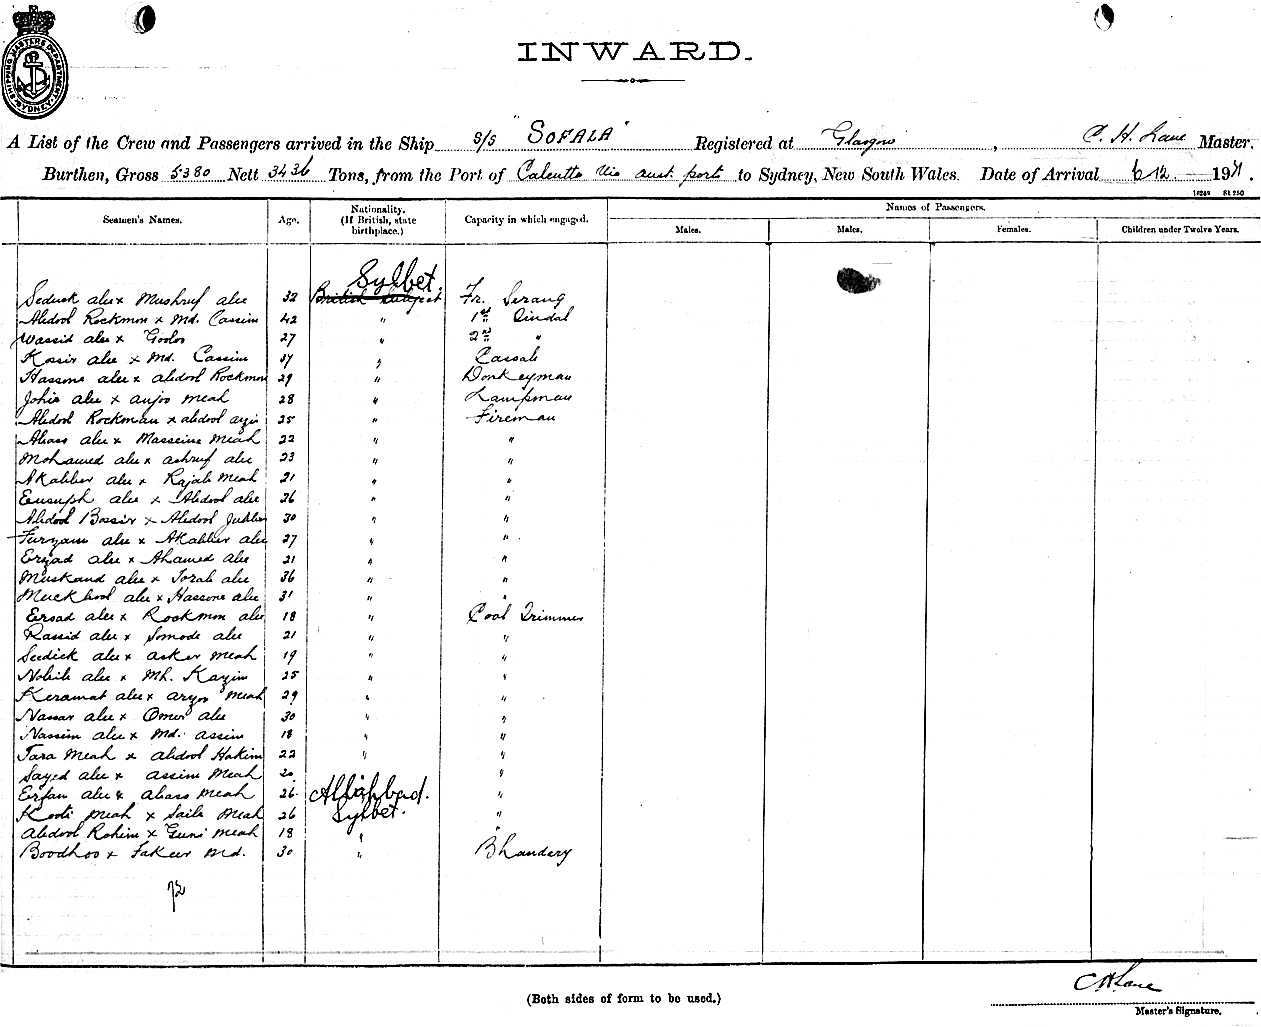 SHIPPING MASTERS DEPARTMENT SYDNEY
INWARD.
A List of the Crew and Passengers arrived in the Ship S/S "SOFALA" Registered at Glasgow, C. H. Lane Master.
Burthen, Gross 5380 Nett 3436 Tons, from the Port of Calcutta via Aust ports to Sydney, New South Wales. Date of Arrival 6/12 19
Seamen's Names. Age. Nationality. (If British, state birthplace.) Capacity in which engaged. Names of Passengers.
Males. Males. Females. Children under Twelve Years.
Sylbet.
Seduck alee x Mushruf alee 32 British Subject Fr. Serang
Abdool Rockmon x Md. Cassim 42 " 1st Tindal
Wassid alee x Goolos 27 " 2nd "
Kassir alee x Md. Cassim 37 " Cassab
Hassone alee x abdool Rockmon 29 " Donkeyman
Johir alee x anjoo meah 28 " Lampman
Abdool Rockman x abdool azis 35 " Fireman
Abass alee x Masseine Meah 22 " "
Mohamed alee x ashruf alee 23 " "
Akabber alee x Rajab Meah 21 " "
Eusuph alee x Abdool alee 26 " "
Abdool Bassir x Abdool Jubber 30 " "
Furzam alee x Akabber alee 27 " "
Erzad alee x Ahamed alee 21 " "
Muskand alee x Torab alee 36 " "
Muckbool alee x Hassone alee 31 " "
Ersad alee x Rockmon alee 18 " Coal Trimmer
Rassid alee x Somode alee 21 " "
Seedick alee x asker Meah 19 " "
Nobib alee x Mh. Kazim 25 " "
Keramat alee x arzoo Meah 29 " "
Nassar alee x Omer alee 30 " "
Nassim alee x Md. assim 18 " "
Tara Meah x abdool Hakim 22 " "
Sayed alee x assim Meah 20 "
Erfan alee x abass Meah 26 Allahabad. "
Kooti Meah x Saib Meah 26 Sylbet. "
Abdool Rohim x Guni Meah 18 " "
Boodhoo x Fakeer Md. 30 " Bhandary
(Both sides of form to be used.)
C H Lane
Master's Signature.